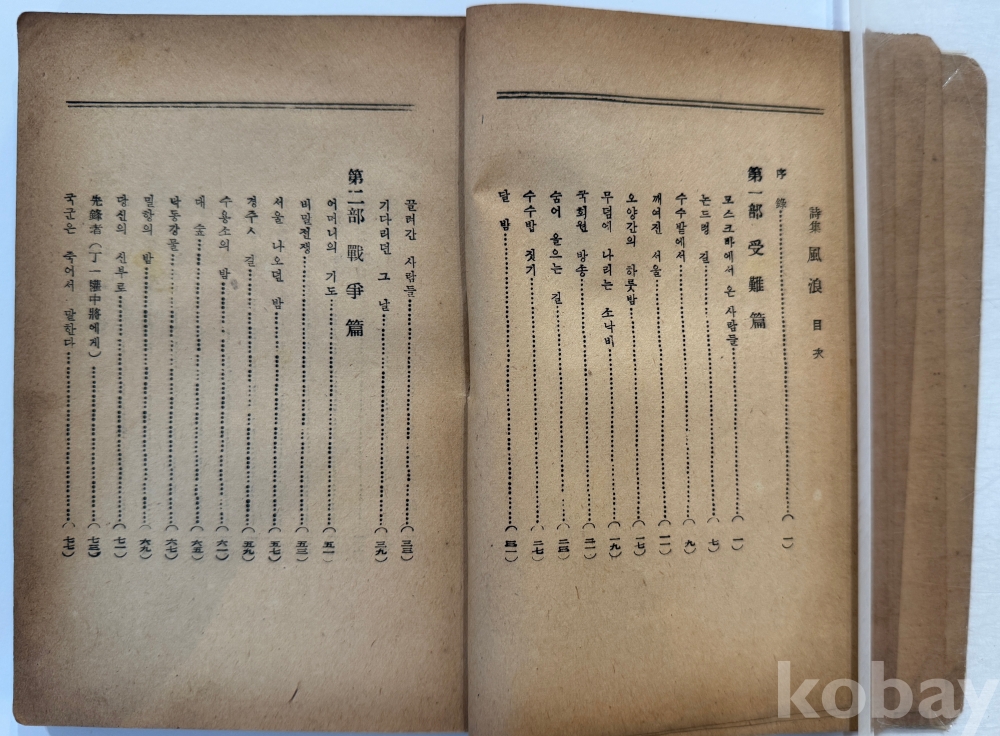 詩集 風浪 目次
序 錄……(一)
第一部 受難篇
모스크바에서 온 사람들……(一)
논드렁 길……(七)
수수밭에서……(九)
깨여진 서울……(一一)
오양간의 하룻밤……(一七)
무덤에 나리는 소낙비……(一九)
국회원 방송……(二一)
숨어 울으는 길……(二四)
수수밥 짓기……(二七)
달 밤……(三一)
끌려간 사람들……(三三)
기다리던 그 날……(三九)
第二部 戰爭篇
어머니의 기도……(五一)
비밀전쟁……(五三)
서울 나오던 밤……(五七)
경주 길……(五九)
수용소의 밤……(六一)
대 숲……(六五)
낙동강물……(六七)
밀항의 밤……(六九)
당신의 신부로……(七一)
先鋒者(丁一權中將에게)……(七三)
국군은 죽어서 말한다……(七七)
kobay